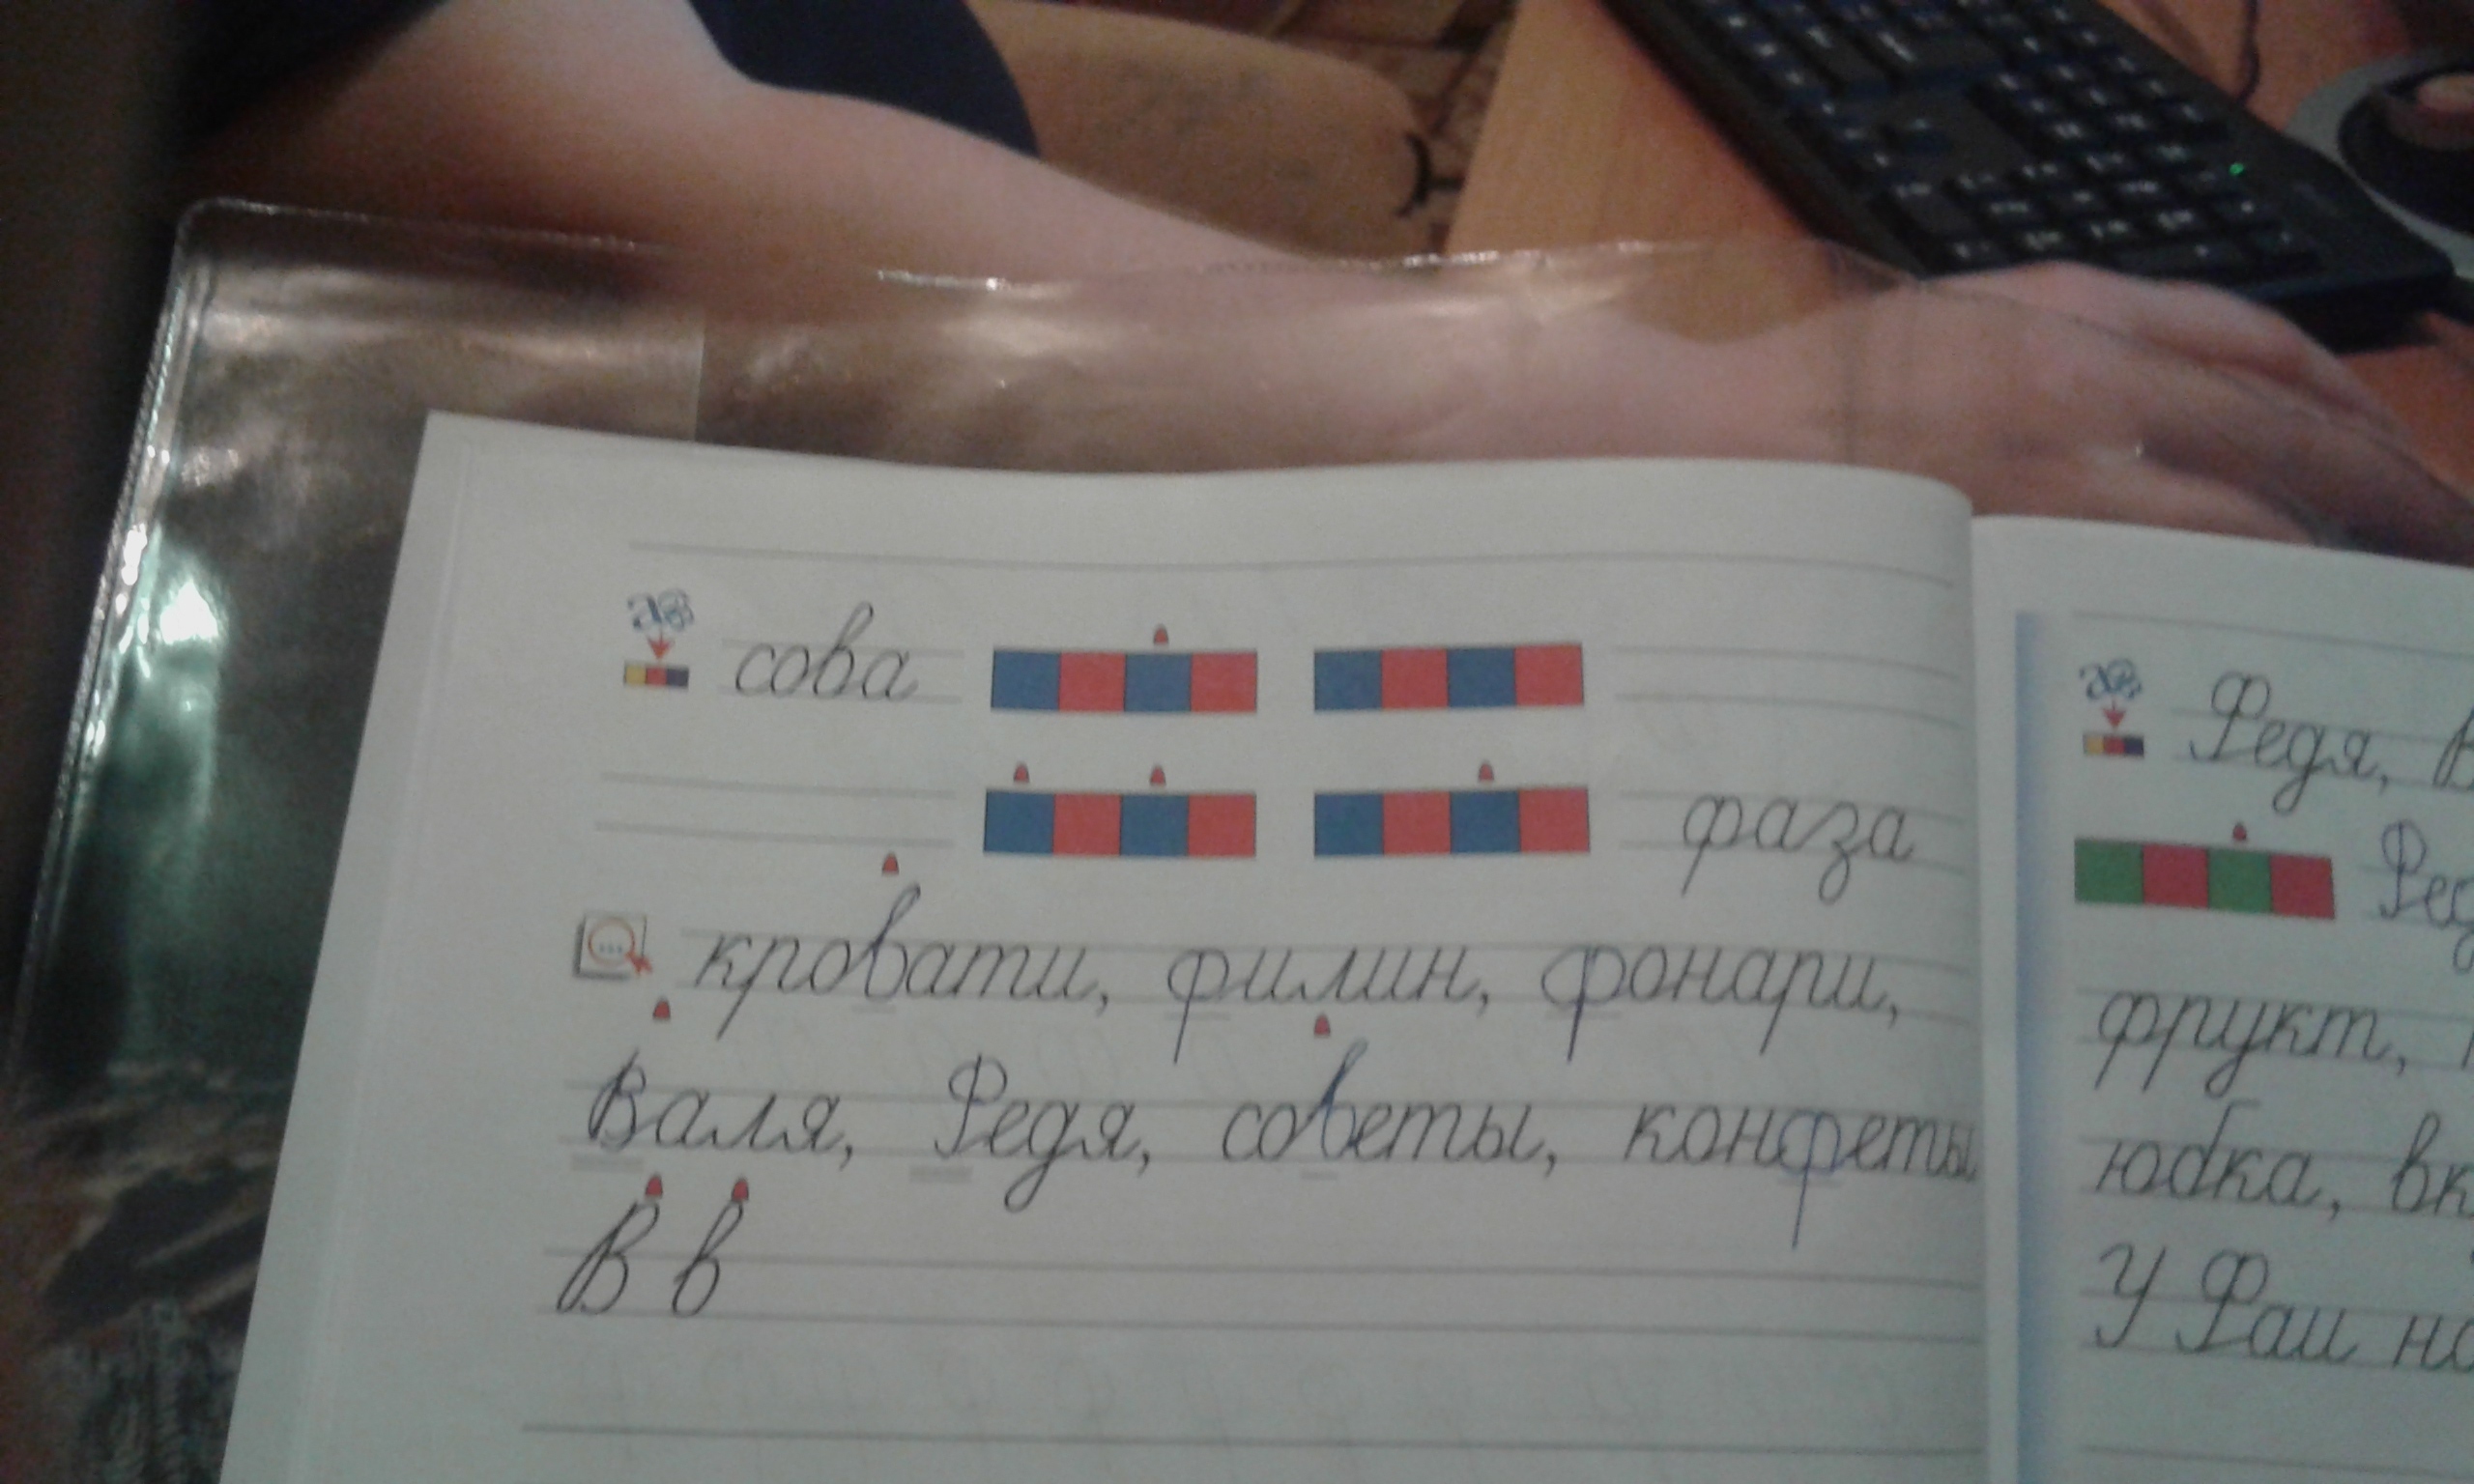 ав
сова
фаза
кровати, филин, фонари,
Валя, Федя, советы, конфеты
В в
ав
Федя,
фрукт,
юбка,
У Фаи